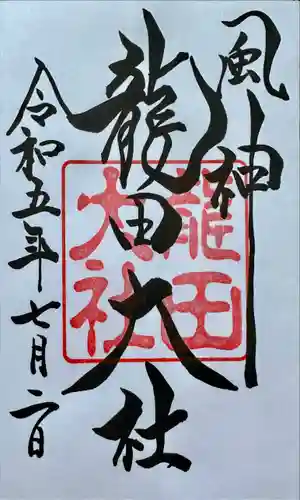 風神
龍田大社
令和五年七月二日
龍田
大社